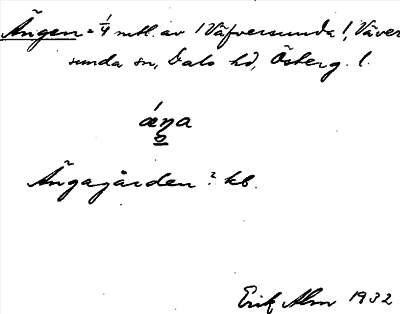 Ängen = 1/4 mtl. av 1 Väfversunda l, Väver
sunda sn, Dals hd, Österg. l.
áŋa
Ängagården? kb.
Erik Alm 1932